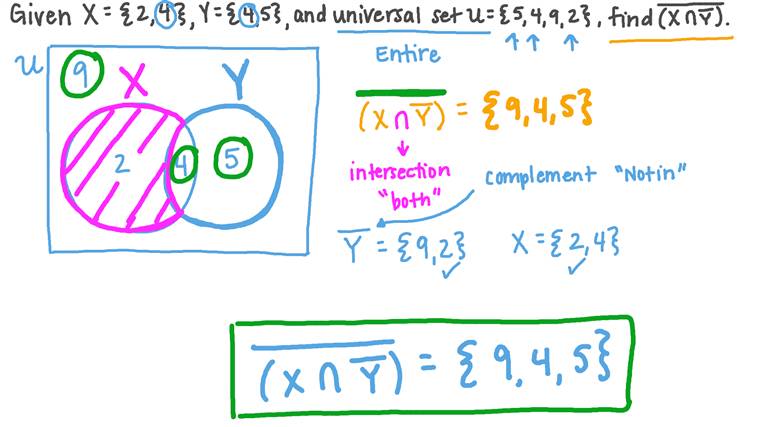 Given X = {2,4}, Y={4,5}, and universal set U={5,4,9,2}, find \overline{(X ∩ \overline{Y})}.
Entire
U
9
X
Y
2
4
5
\overline{(X ∩ \overline{Y})} = {9,4,5}
intersection
"both"
complement "Not in"
\overline{Y} = {9,2}
X = {2,4}
\overline{(X ∩ \overline{Y})} = {9,4,5}